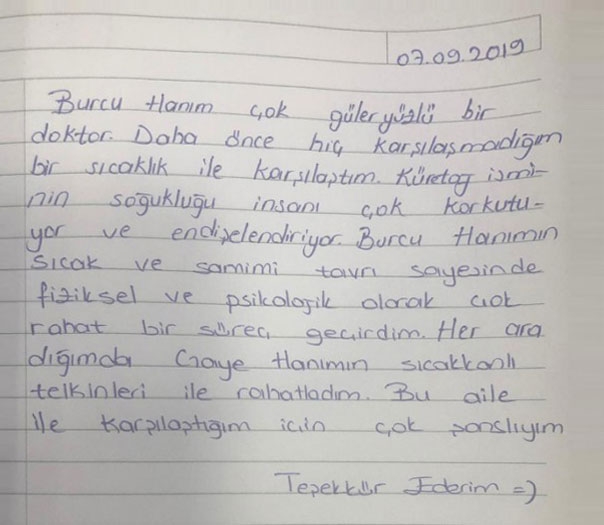 07.09.2019
Burcu Hanım çok güleryüzlü bir
doktor. Daha önce hiç karşılaşmadığım
bir sıcaklık ile karşılaştım. Küretag ismi-
nin soğukluğu insanı çok korkutu-
yor ve endişelendiriyor. Burcu Hanımın
sıcak ve samimi tavrı sayesinde
fiziksel ve psikolojik olarak çok
rahat bir süreç geçirdim. Her ara
dığımda Gaye Hanımın sıcakkanlı
telkinleri ile rahatladım. Bu aile
ile karşılaştığım için çok şanslıyım
Teşekkür Ederim =)